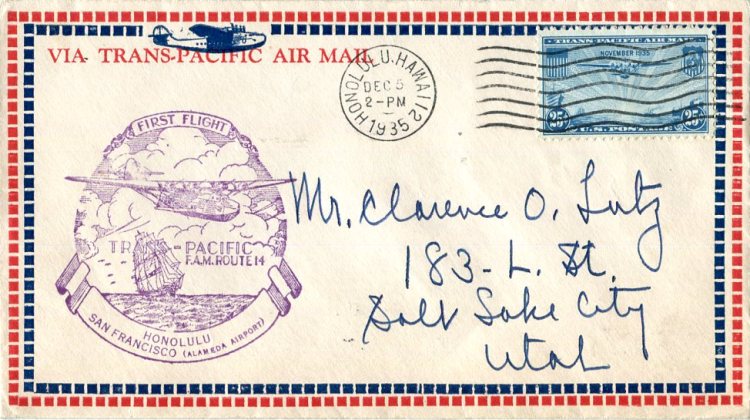 VIA TRANS-PACIFIC AIR MAIL
HONOLULU, HAWAII 2
DEC 5
2-PM
1935
TRANS-PACIFIC AIR MAIL
NOVEMBER 1935
25¢ U.S. POSTAGE 25¢
FIRST FLIGHT
TRANS-PACIFIC
F.A.M. ROUTE 14
HONOLULU
SAN FRANCISCO (ALAMEDA AIRPORT)
Mr. Clarence O. Lutz
183-L. St.
Salt Lake City
Utah